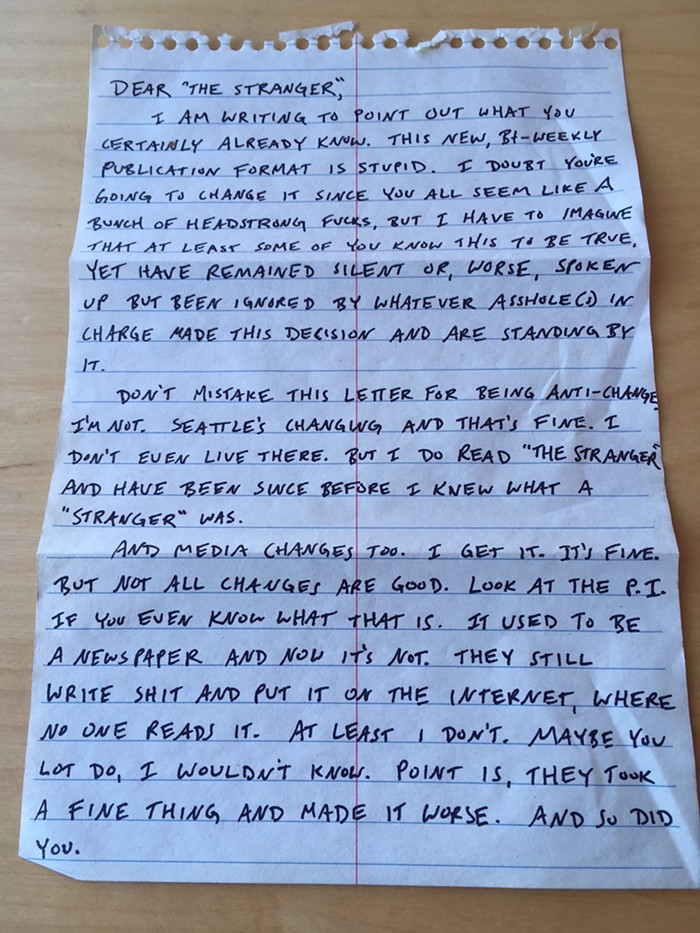 DEAR "THE STRANGER,"
I AM WRITING TO POINT OUT WHAT YOU
CERTAINLY ALREADY KNOW. THIS NEW, BI-WEEKLY
PUBLICATION FORMAT IS STUPID. I DOUBT YOU'RE
GOING TO CHANGE IT SINCE YOU ALL SEEM LIKE A
BUNCH OF HEADSTRONG FUCKS, BUT I HAVE TO IMAGINE
THAT AT LEAST SOME OF YOU KNOW THIS TO BE TRUE,
YET HAVE REMAINED SILENT OR, WORSE, SPOKEN
UP BUT BEEN IGNORED BY WHATEVER ASSHOLE(S) IN
CHARGE MADE THIS DECISION AND ARE STANDING BY
IT.
DON'T MISTAKE THIS LETTER FOR BEING ANTI-CHANGE
I'M NOT. SEATTLE'S CHANGING AND THAT'S FINE. I
DON'T EVEN LIVE THERE. BUT I DO READ "THE STRANGER"
AND HAVE BEEN SINCE BEFORE I KNEW WHAT A
"STRANGER" WAS.
AND MEDIA CHANGES TOO. I GET IT. IT'S FINE.
BUT NOT ALL CHANGES ARE GOOD. LOOK AT THE P.I.
IF YOU EVEN KNOW WHAT THAT IS. IT USED TO BE
A NEWSPAPER AND NOW IT'S NOT. THEY STILL
WRITE SHIT AND PUT IT ON THE INTERNET, WHERE
NO ONE READS IT. AT LEAST I DON'T. MAYBE YOU
LOT DO, I WOULDN'T KNOW. POINT IS, THEY TOOK
A FINE THING AND MADE IT WORSE. AND SO DID
YOU.